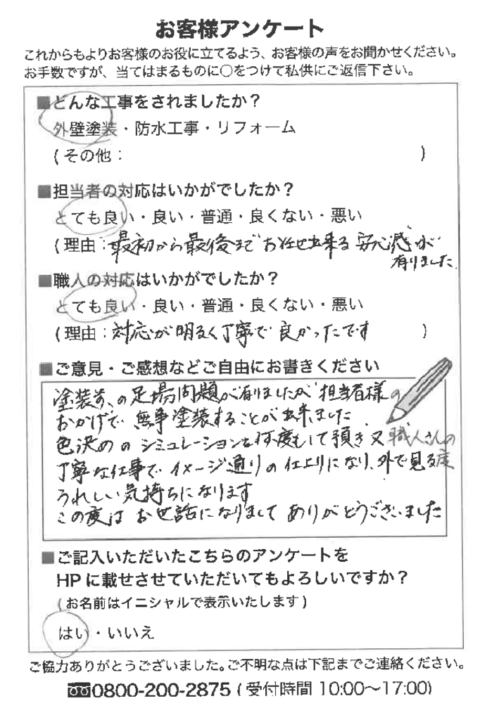 お客様アンケート
これからもよりお客様のお役に立てるよう、お客様の声をお聞かせください。
お手数ですが、当てはまるものに〇をつけて私供にご返信下さい。
■どんな工事をされましたか?
外壁塗装・防水工事・リフォーム
(その他: )
■担当者の対応はいかがでしたか?
とても良い・良い・普通・良くない・悪い
(理由: 最初から最後までお任せ出来る安心感が
有りました
■職人の対応はいかがでしたか?
とても良い・良い・普通・良くない・悪い
(理由: 対応が明るく丁寧で良かったです )
■ご意見・ご感想などご自由にお書きください
塗装前の足場問題が有りましたが担当者様の
おかげで無事塗装することが出来ました
色決めのシミュレーションを何度もして頂き又職人さんの
丁寧な仕事でイメージ通りの仕上りになり、外で見る度
うれしい気持ちになります
この度はお世話になりましてありがとうございました
■ご記入いただいたこちらのアンケートを
HPに載せさせていただいてもよろしいですか?
(お名前はイニシャルで表示いたします)
はい・いいえ
ご協力ありがとうございました。ご不明な点は下記までご連絡ください。
0800-200-2875 (受付時間 10:00〜17:00)